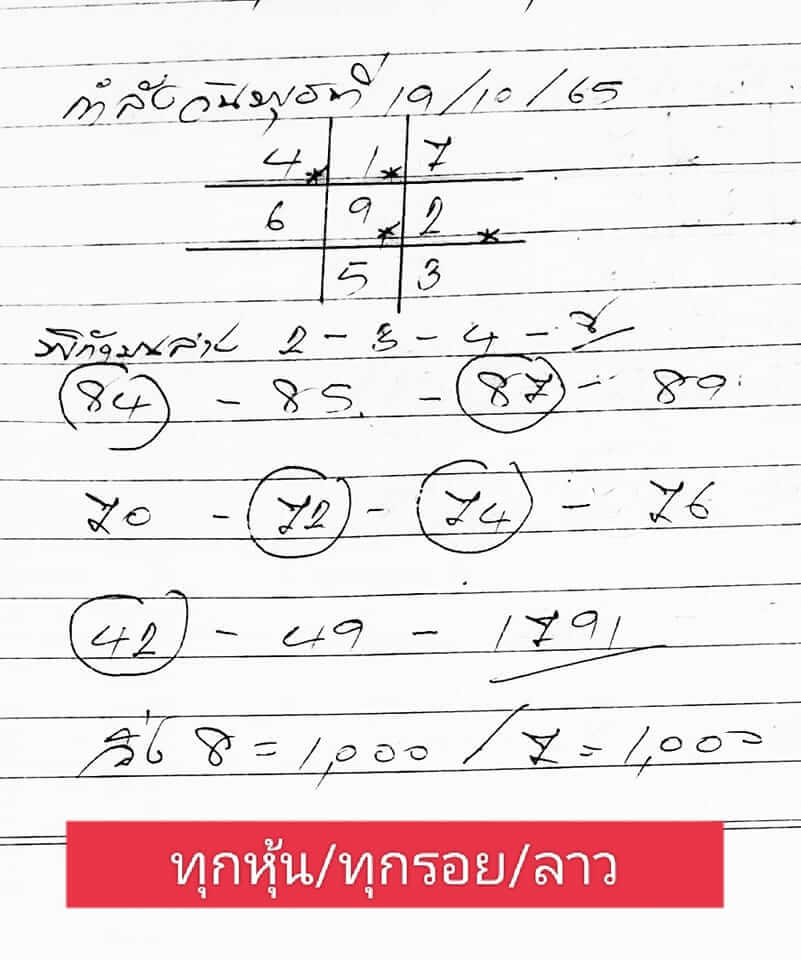 กำลังวันพุธที่ 19/10/65
4 1 7
6 9 2
5 3
พิกัดบนล่าง 2 - 3 - 4 - 7
84 - 85 - 87 - 89
70 - 72 - 74 - 76
42 - 49 - 1791
วิ่ง 8 = 1,000 / 7 = 1,000
ทุกหุ้น/ทุกรอย/ลาว